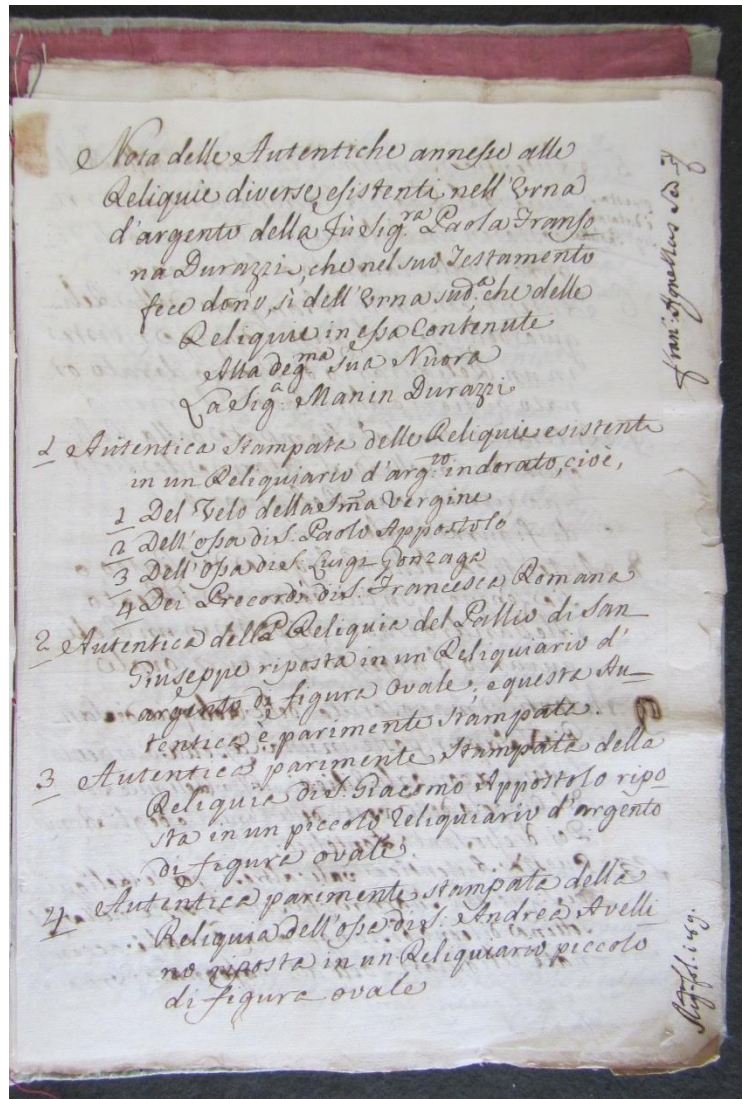 Nota delle Autentiche annesse alle
Reliquie diverse, esistenti nell'Urna
d'argento della Fù Sig.ra Paola Franso
na Durazzi, che nel suo Testamento
fece dono, sì dell'Urna sud.a che delle
Reliquie in essa Contenute
Alla deg.ma sua Nuora
La Sig.a Manin Durazzi
1 Autentica stampata delle Reliquie esistenti
in un Reliquiario d'arg.to indorato, cioè,
1 Del Velo della Sma Vergine
2 Dell'ossa di S. Paolo Appostolo
3 Dell'Ossa di S. Luigi Gonzaga
4 Dei Precordi di S. Francesca Romana
2 Autentica della Reliquia del Pallio di San
Giuseppe riposta in un Reliquiario d'
argento di figura ovale, e questa Au-
tentica è parimente stampata.
3 Autentica parimente stampata della
Reliquia di S. Giacomo Appostolo ripo-
sta in un piccolo Reliquiario d'argento
di figura ovale
4 Autentica parimente stampata della
Reliquia dell'ossa di S. Andrea Avelli
no riposta in un Reliquiario piccolo
di figura ovale
Fran. Agnellus
fol. 189.